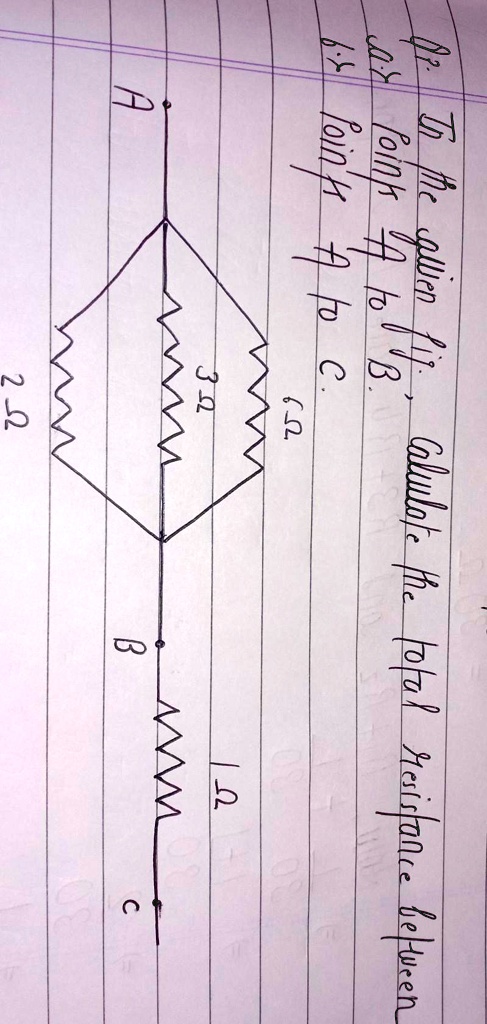 Q7. In the given fig., Calculate the total resistance between
a.> Points A to B.
b.> Points A to C.
6 Ω
3 Ω
1 Ω
A
B
C
2 Ω